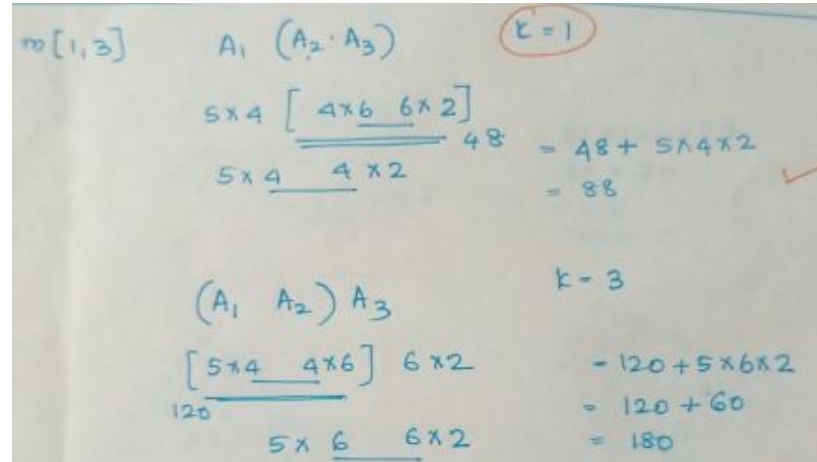 m[1,3] A₁ (A₂ · A₃) k = 1
5×4 [ 4×6 6×2]
48 = 48 + 5×4×2
5×4 4×2
= 88
(A₁ A₂) A₃ k - 3
[5×4 4×6] 6×2 - 120+5×6×2
120 = 120 + 60
5× 6 6×2 = 180